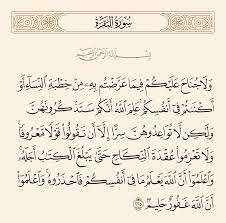 سُورَةُ البَقَرَةِ
بِسْمِ اللَّهِ الرَّحْمَٰنِ الرَّحِيمِ
وَلَا جُنَاحَ عَلَيْكُمْ فِيمَا عَرَّضْتُم بِهِۦ مِنْ خِطْبَةِ ٱلنِّسَآءِ أَوْ
أَكْنَنتُمْ فِىٓ أَنفُسِكُمْ عَلِمَ ٱللَّهُ أَنَّكُمْ سَتَذْكُرُونَهُنَّ
وَلَٰكِن لَّا تُوَاعِدُوهُنَّ سِرًّا إِلَّآ أَن تَقُولُوا۟ قَوْلًا مَّعْرُوفًا
وَلَا تَعْزِمُوا۟ عُقْدَةَ ٱلنِّكَاحِ حَتَّىٰ يَبْلُغَ ٱلْكِتَٰبُ أَجَلَهُۥ
وَٱعْلَمُوٓا۟ أَنَّ ٱللَّهَ يَعْلَمُ مَا فِىٓ أَنفُسِكُمْ فَٱحْذَرُوهُ وَٱعْلَمُوٓا۟
أَنَّ ٱللَّهَ غَفُورٌ حَلِيمٌ ٢٣٥